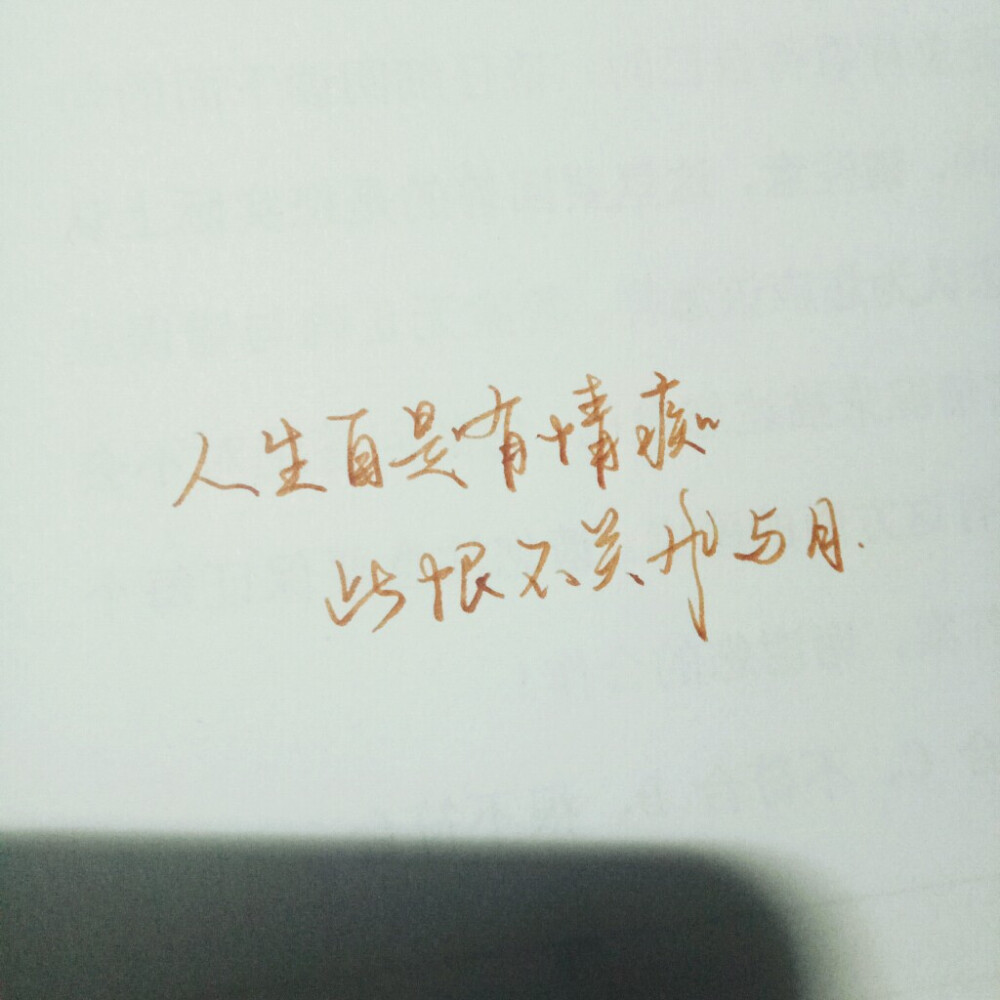 人生自是有情痴
此恨不关风与月.